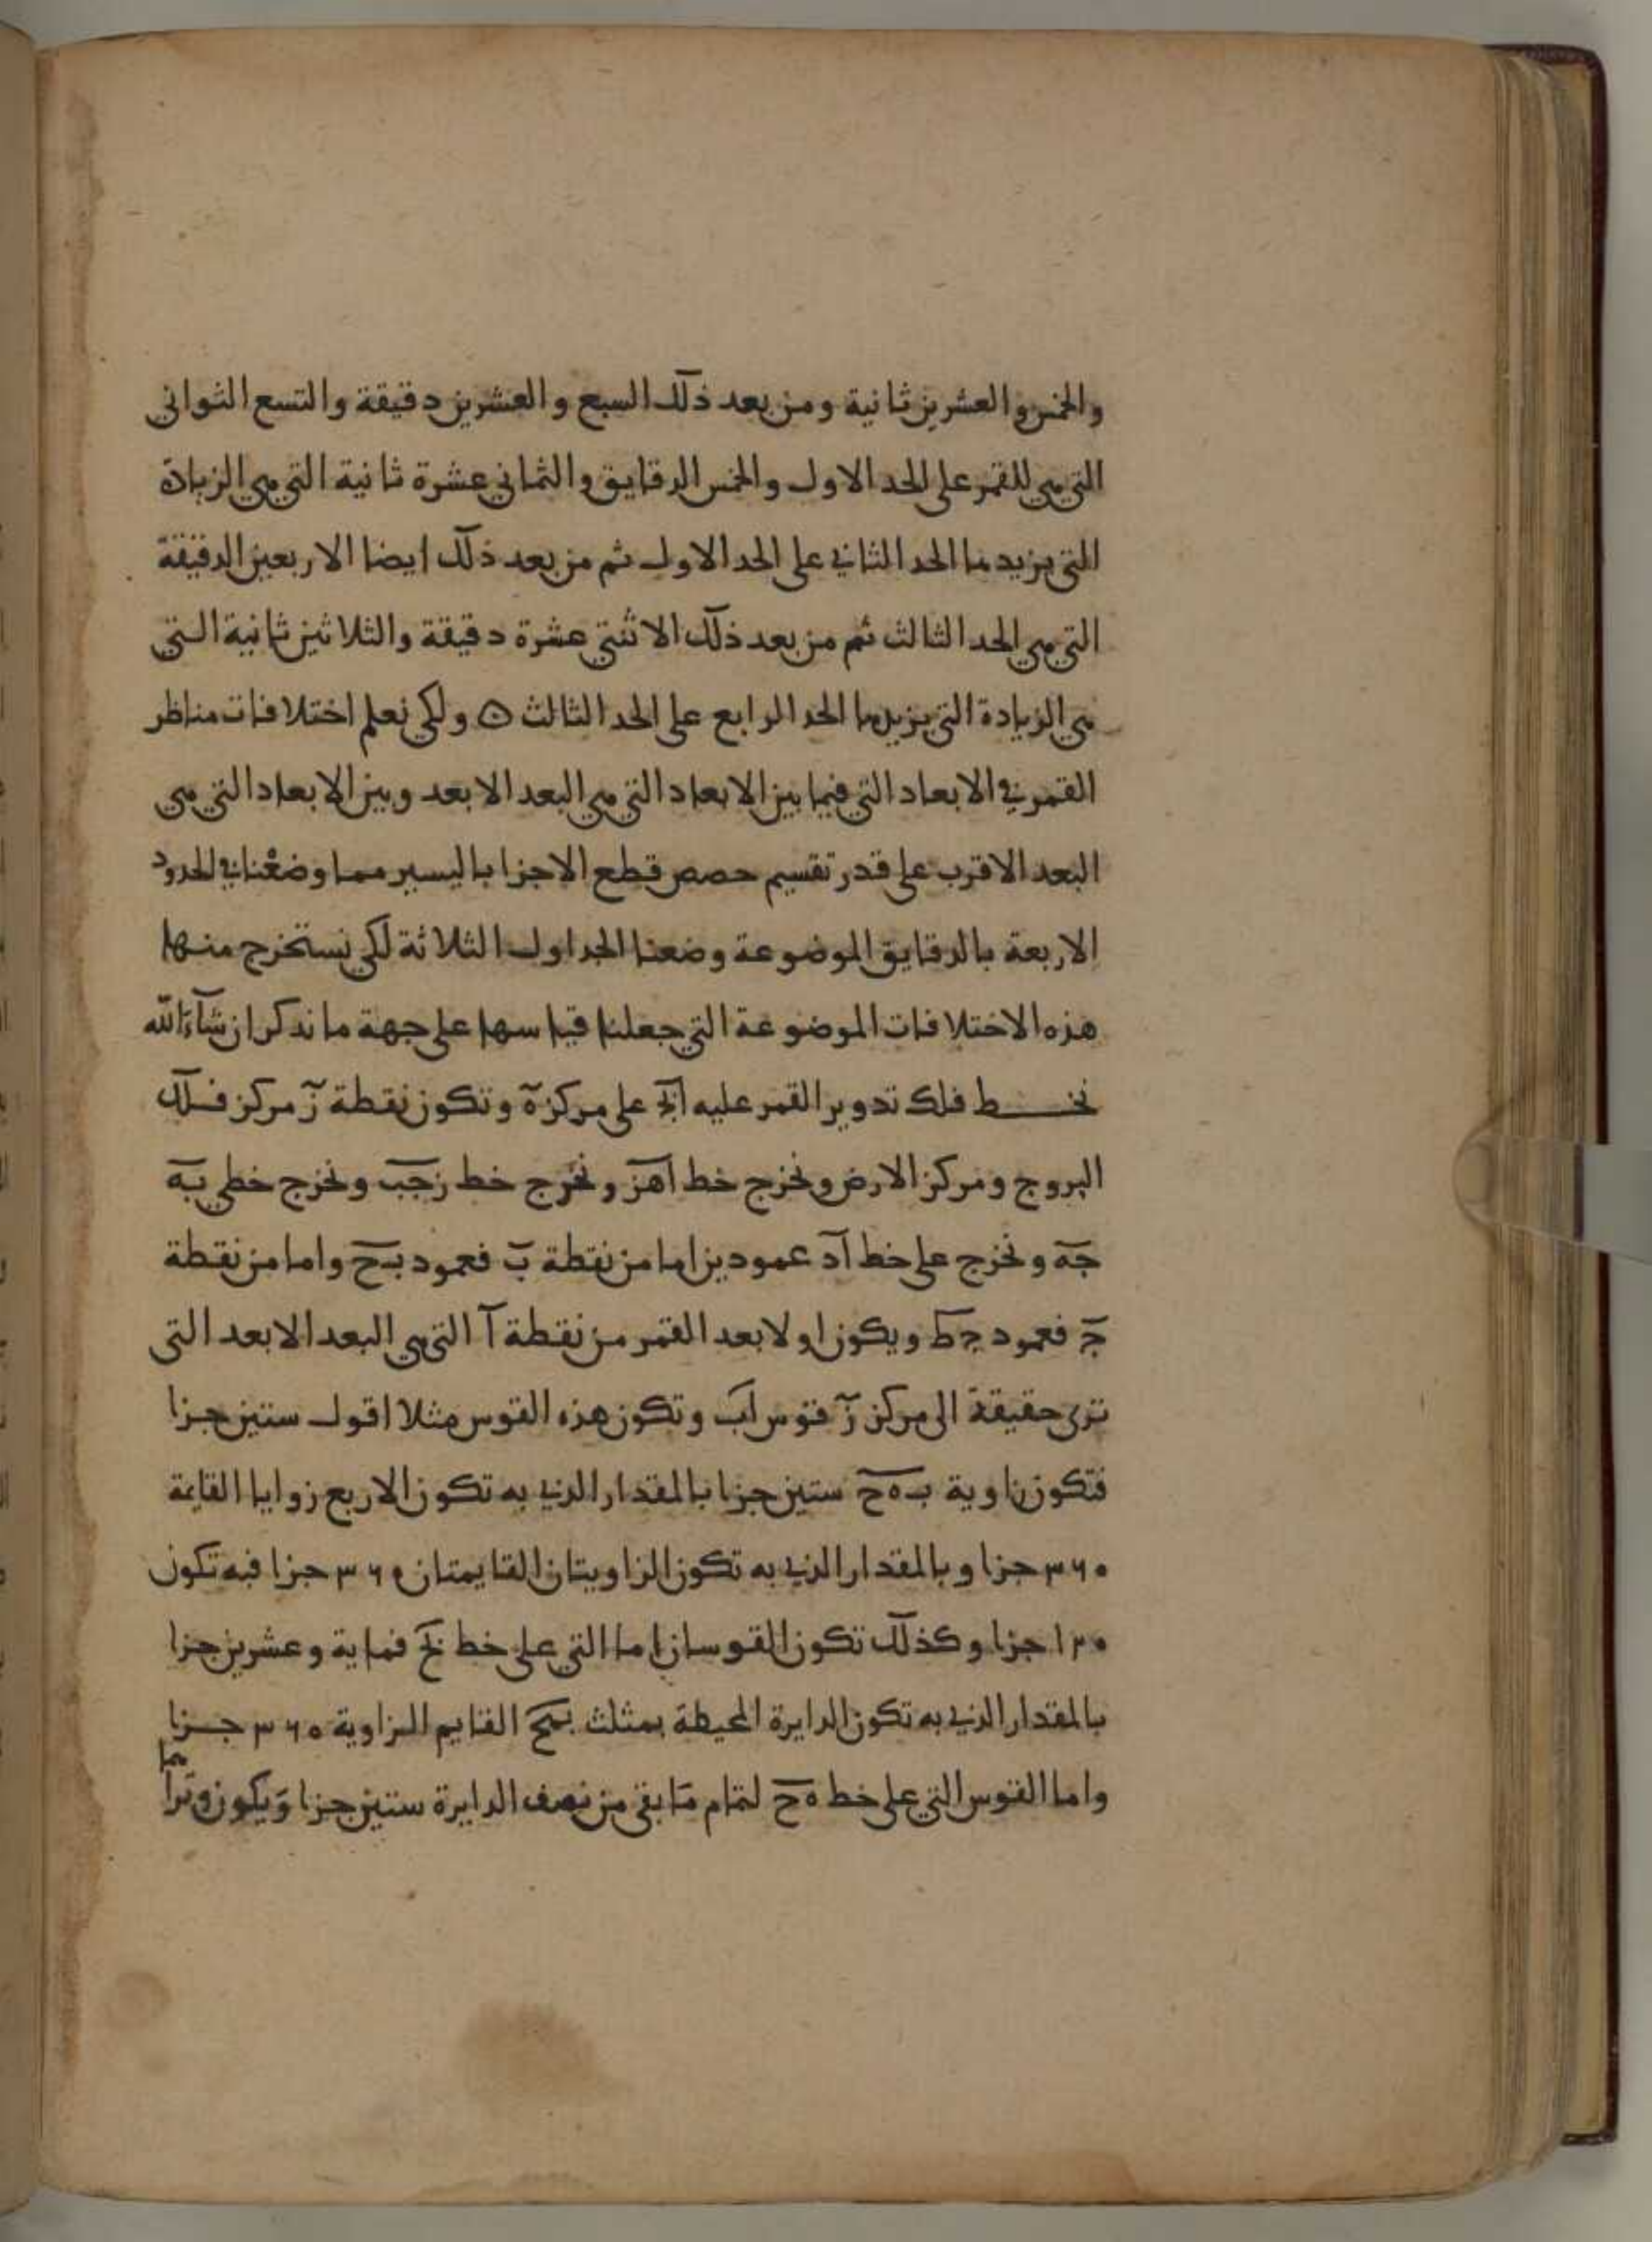 والخمس والعشرين ثانية ومن بعد ذلك السبع والعشرين دقيقة والتسع الثواني
التي هي للقمر على الحد الاول والخمس الدقايق والثماني عشرة ثانية التي هي الزيادة
التي يزيدها الحد الثاني على الحد الاول ثم من بعد ذلك ايضا الاربعين الدقيقة
التي هي الحد الثالث ثم من بعد ذلك الاثنتي عشرة دقيقة والثلاثين ثانية التي
هي الزيادة التي يزيدها الحد الرابع على الحد الثالث ۞ ولكي نعلم اختلافات مناظر
القمر في الابعاد التي فيما بين الابعاد التي هي البعد الابعد وبين الابعاد التي هي
البعد الاقرب على قدر تقسيم حصص قطع الاجزا باليسير مما وضعنا في الحدود
الاربعة بالدقايق الموضوعة وضعنا الجداول الثلاثة لكي نستخرج منها
هذه الاختلافات الموضوعة التي جعلنا قياسها على جهة ما نذكر ان شآء الله
نخط فلك تدوير القمر عليه ابج على مركز ه وتكون نقطة ز مركز فلك
البروج ومركز الارض ونخرج خط اهز ونخرج خط زجب ونخرج خطي به
جه ونخرج على خط اد عمودين اما من نقطة ب فعمود بح واما من نقطة
ج فعمود جط ويكون اولا بعد القمر من نقطة ا التي هي البعد الابعد التي
ترى حقيقة الى مركز ز قوس اب وتكون هذه القوس مثلا اقول ستين جزا
فتكون زاوية بهح ستين جزا بالمقدار الذي به تكون الاربع زوايا القايمة
٣٦٠ جزا وبالمقدار الذي به تكون الزاويتان القايمتان ٣٦٠ جزا فبه تكون
١٢٠ جزا وكذلك تكون القوسان اما التي على خط بح فماية وعشرين جزا
بالمقدار الذي به تكون الدايرة المحيطة بمثلث بهح القايم الزاوية ٣٦٠ جزا
واما القوس التي على خط هح لتمام ما بقي من نصف الدايرة ستين جزا ويكون وتراهما